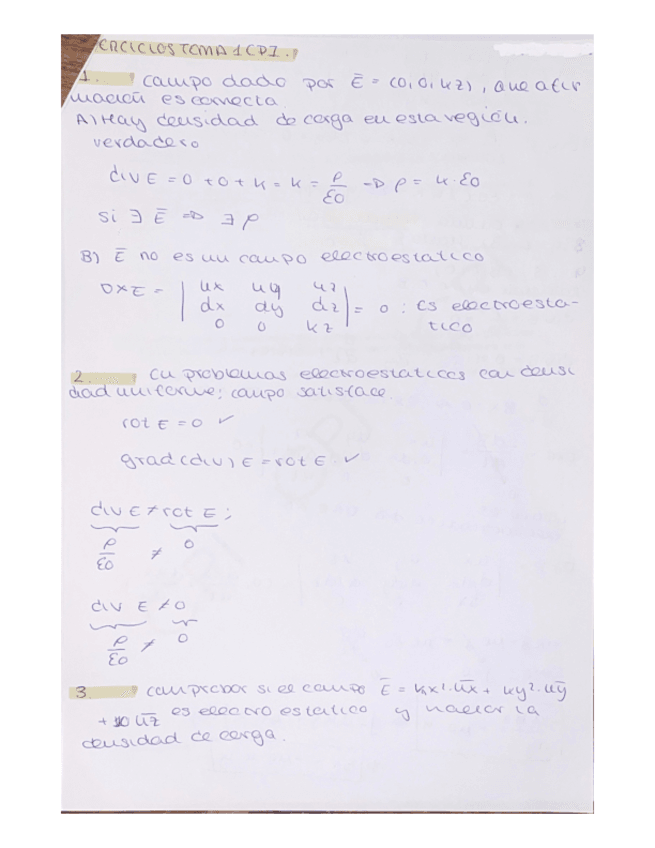 ERCICIOS TEMA 1 CDI.
1. campo dado por Ē = (0, 0, kz), que afir
mación es correcta.
A) Hay densidad de carga en esta región.
verdadero
div E = 0 + 0 + K = K = ρ/ε0 ⇒ ρ = K·ε0
si ∃ Ē ⇒ ∃ ρ
B) Ē no es un campo electroestatico
∇×E = | ux uy uz |
| dx dy dz | = 0 : es electroesta-
| 0 0 kz | tico
2. en problemas electroestaticos con densi
dad uniforme; campo satisface.
rot E = 0 ✓
grad (div) E = rot E ✓
div E ≠ rot E ;
ρ/ε0 ≠ 0
div E ≠ 0
ρ/ε0 ≠ 0
3. comprobar si el campo Ē = ux + ky²·uy
+ 10 uz es electro estatico y la
densidad de carga.